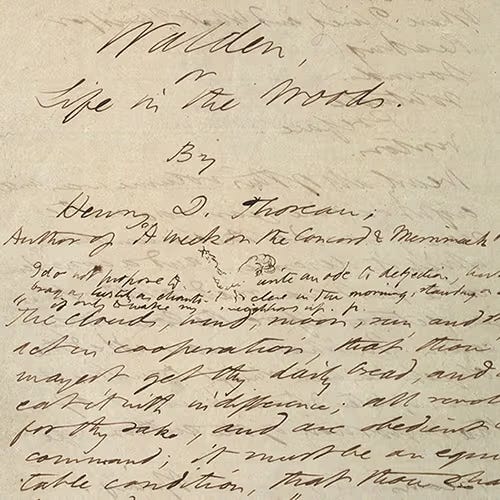 Walden,
or
Life in the Woods.
By
Henry D. Thoreau;
Author of "A week on the Concord & Merrimack"
I do not propose to write an ode to dejection, but
brag as lustily as chanticleer in the morning, standing on
" if only to wake my neighbors up. p.
The clouds, wind, moon, sun, and
act in cooperation, that thou
mayest get thy daily bread, and
eat it with indifference; all revol
for thy sake, and are obedient
command; it must be an equi
table condition, that thou sha